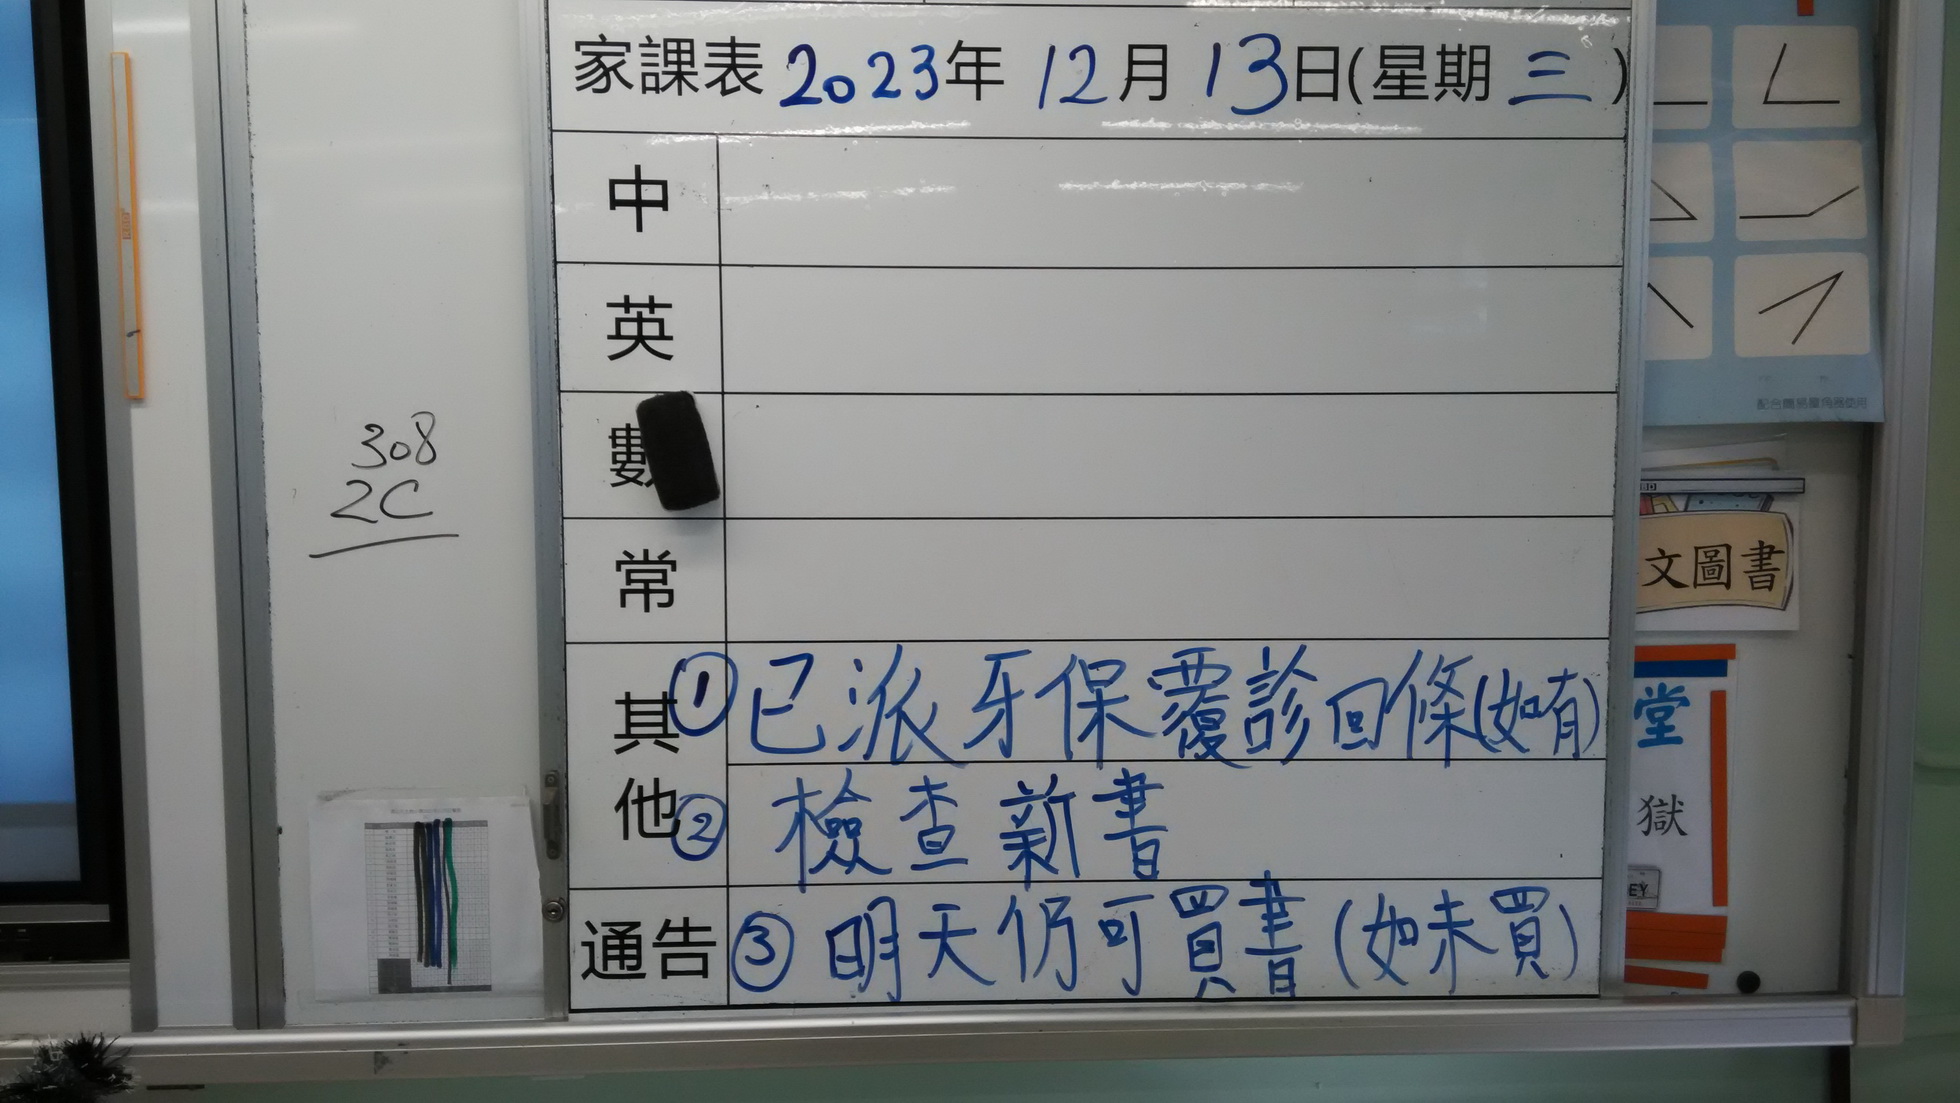 家課表 2023年 12月 13日(星期三)
中
英
數
常
其他
①已派牙保覆診回條(如有)
②檢查新書
通告
③明天仍可買書(如未買)
308
2C
配合簡易量角器使用
文圖書
堂
獄
EY